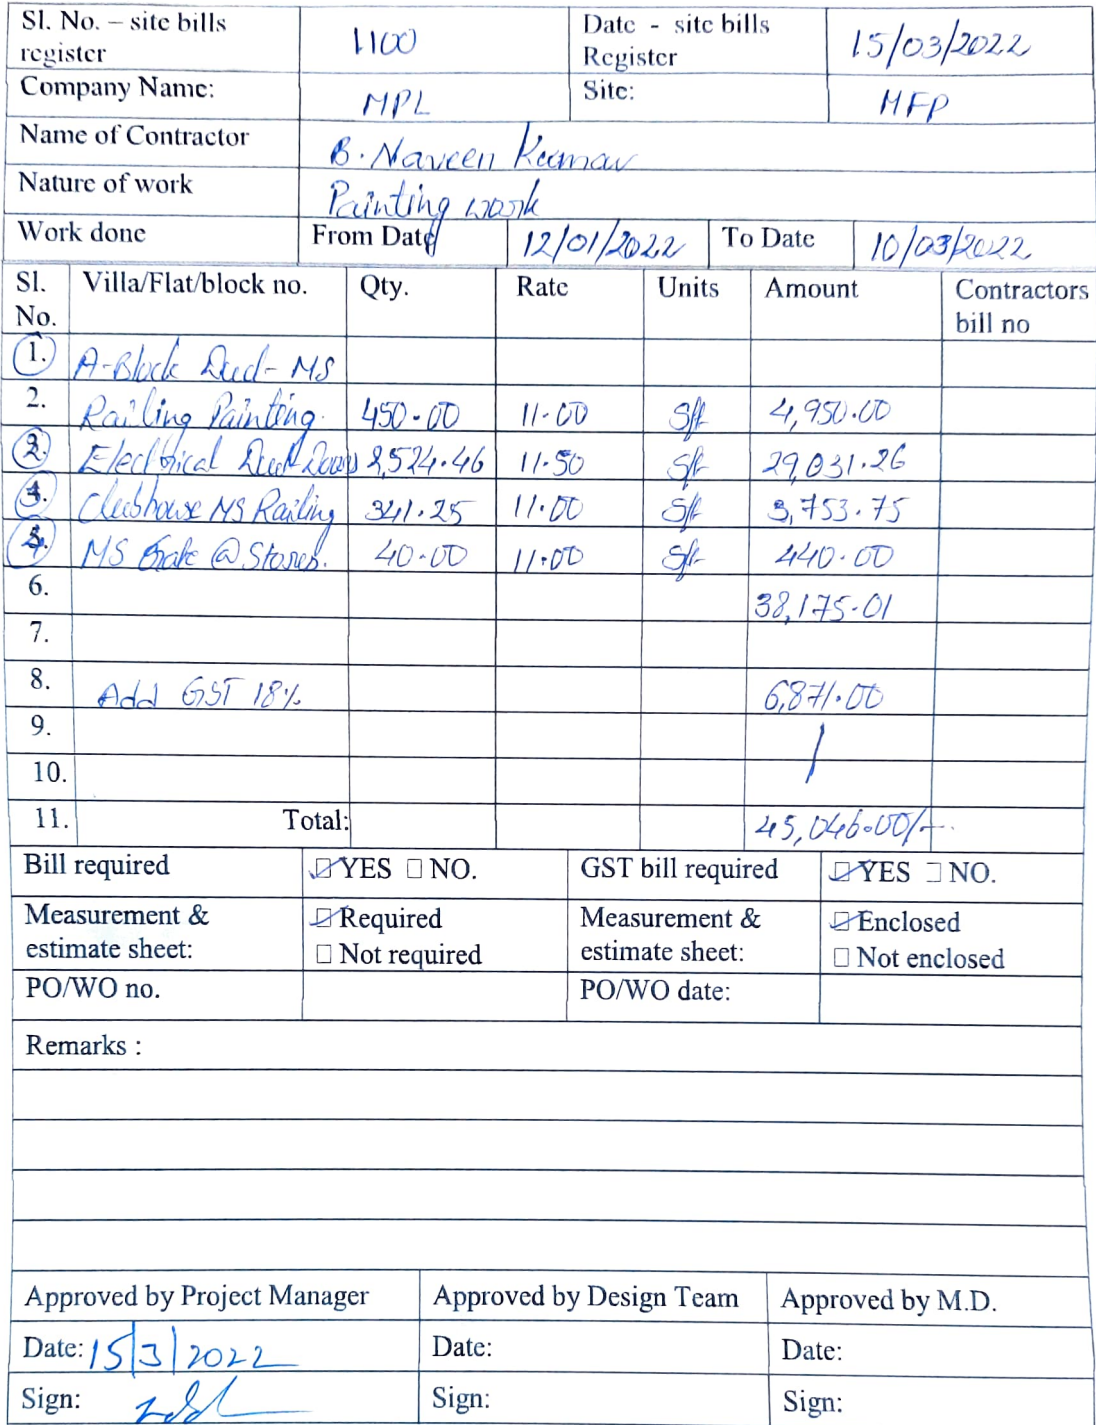 Sl. No. – site bills register 1100 Date - site bills Register 15/03/2022
Company Name: MPL Site: MFP
Name of Contractor B. Naveen Kumar
Nature of work Painting work
Work done From Date 12/01/2022 To Date 10/03/2022
Sl. No. Villa/Flat/block no. Qty. Rate Units Amount Contractors bill no
1. A-Block Duct- MS
2. Railing Painting. 450-00 11-00 Sft 4,950.00
2. Electrical Duct Doors 2,524.46 11.50 Sft 29,031.26
3. Clubhouse MS Railing 341.25 11.00 Sft 3,753.75
4. MS Gate @ Stores. 40-00 11.00 Sft 440.00
6. 38,175.01
7.
8. Add GST 18% 6,871.00
9.
10.
11. Total: 45,046.00/-
Bill required ☑ YES ☐ NO. GST bill required ☑ YES ☐ NO.
Measurement & estimate sheet: ☑ Required ☐ Not required Measurement & estimate sheet: ☑ Enclosed ☐ Not enclosed
PO/WO no. PO/WO date:
Remarks :
Approved by Project Manager Approved by Design Team Approved by M.D.
Date: 15/3/2022 Date: Date:
Sign: Sign: Sign: